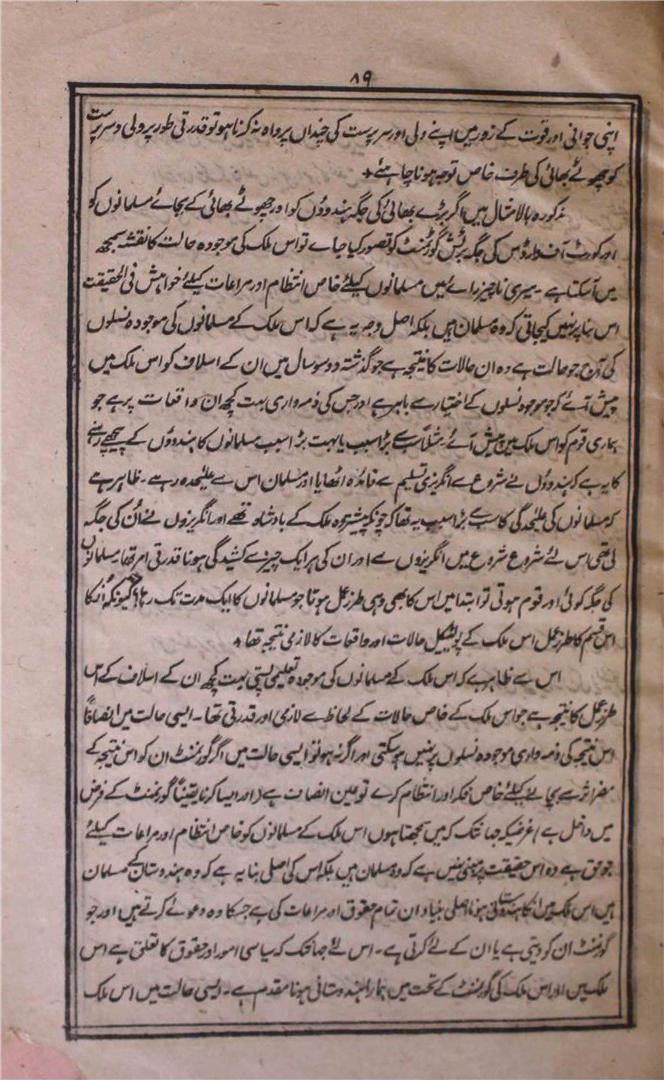 ۸۹
اپنی جوانی اور قوت کے زور میں اپنے ولی اور سرپرست کی چنداں پرواہ نہ کرنا ہو تو قدرتی طور پر ولی و سرپرست
کو چھوٹے بھائی کی طرف خاص توجہ ہونا چاہئے٭
مذکورہ بالا مثال میں اگر بڑے بھائی کی جگہ ہندوؤں کو اور چھوٹے بھائی کے بجائے مسلمانوں کو
اور کورٹ آف وارڈس کی جگہ برٹش گورنمنٹ کو تصور کیا جاے تو اس ملک کی موجودہ حالت کا نقشہ سمجھ
میں آ سکتا ہے۔ میری ناچیز رائے میں مسلمانوں کیلئے خاص انتظام اور مراعات کیلئے خواہش فی الحقیقت
اس بنا پر نہیں کیجاتی کہ وہ مسلمان ہیں بلکہ اصل وجہ یہ ہے کہ اس ملک کے مسلمانوں کی موجودہ نسلوں
کی آج جو حالت ہے وہ ان حالات کا نتیجہ ہے جو گذشتہ دو سو سال میں ان کے اسلاف کو اس ملک میں
پیش آئے کہ جو موجودہ نسلوں کے اختیار سے باہر ہے اور جس کی ذمہ واری بہت کچھ ان واقعات پر ہے جو
ہماری قوم کو اس ملک میں پیش آئے۔ مثلاً سب سے بڑا سبب یا بہت بڑا سبب مسلمانوں کا ہندوؤں کے پیچھے رہنے
کا یہ ہے کہ ہندوؤں نے شروع سے انگریزی تعلیم سے فائدہ اٹھایا اور مسلمان اس سے علیٰحدہ رہے۔ ظاہر ہے
کہ مسلمانوں کی علیٰحدگی کا سب سے بڑا سبب یہ تھا کہ چونکہ پیشتر وہ ملک کے بادشاہ تھے اور انگریزوں نے اُن کی جگہ
لی تھی اس لئے شروع شروع میں انگریزوں سے اور ان کی ہر ایک چیز سے کشیدگی ہونا قدرتی امر تھا۔ مسلمانوں
کی جگہ کوئی اور قوم ہوتی تو ابتدا میں اس کا بھی وہی طرز عمل ہوتا جو مسلمانوں کا ایک مدت تک رہا؟ کیونکہ اُنکا
اس قسم کا طرز عمل اس ملک کے پولٹیکل حالات اور واقعات کا لازمی نتیجہ تھا٭
اس سے ظاہر ہے کہ اس ملک کے مسلمانوں کی موجودہ تعلیمی پستی بہت کچھ ان کے اسلاف کے اس
طرز عمل کا نتیجہ ہے جو اس ملک کے خاص حالات کے لحاظ سے لازمی اور قدرتی تھا۔ ایسی حالت میں انصافاً
اس نتیجہ کی ذمہ واری موجودہ نسلوں پر نہیں ہو سکتی اور اگر نہ ہو تو ایسی حالت میں اگر گورنمنٹ ان کو اس نتیجہ کے
مضر اثر سے بچانے کیلئے خاص فکر اور انتظام کرے تو عین انصاف ہے (اور ایسا کرنا یقیناً گورنمنٹ کے فرض
میں داخل ہے) غرضیکہ جہانتک کہ میں سمجھتا ہوں اس ملک کے مسلمانوں کو خاص انتظام اور مراعات کیلئے
جو حق ہے وہ اس حقیقت پر مبنی نہیں ہے کہ وہ مسلمان ہیں بلکہ اس کی اصلی بنا یہ ہے کہ وہ ہندوستان کے مسلمان
ہیں اس ملک میں انکا ہندوستانی ہونا اصلی بنیاد ان تمام حقوق اور مراعات کی ہے جسکا وہ دعوے کرتے ہیں اور جو
گورنمنٹ ان کو دیتی ہے یا ان کے لئے کرتی ہے۔ اس لئے جہانتک کہ سیاسی امور اور حقوق کا تعلق ہے اس
ملک میں اور اس ملک کی گورنمنٹ کے تحت میں ہمارا ہندوستانی ہونا مقدم ہے۔ ایسی حالت میں اس ملک